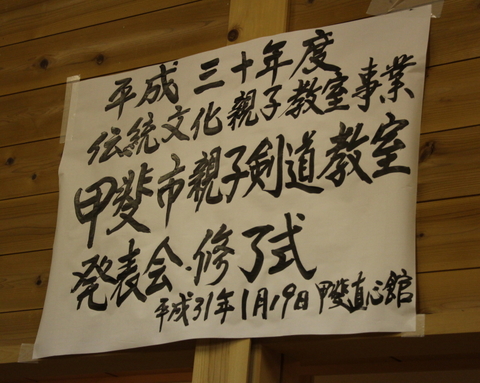 平成三十年度
伝統文化親子教室事業
甲斐市親子剣道教室
発表会・修了式
平成31年1月19日 甲斐直心館